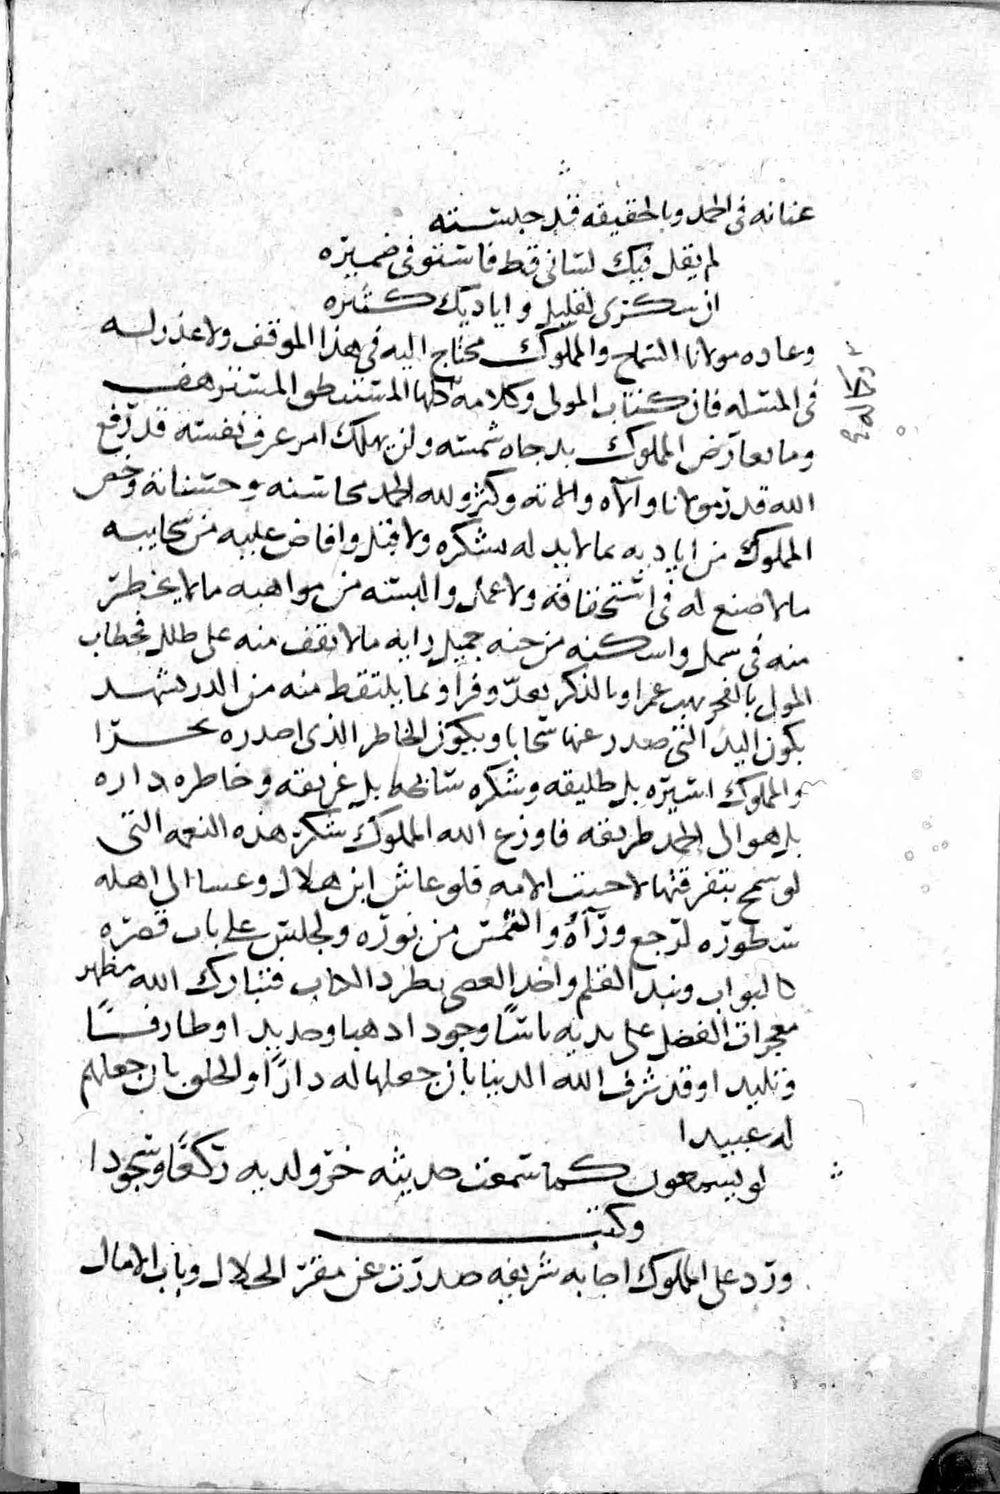 عنانه فى الحمد وبالحقيقه فقد حبسته
لم يقل فيك لسانى قط فاستوفى ضميره
ان شكرى لقليل واياديك كثيره
وعاده مولانا السماح والمملوك محتاج اليه فى هذا الموقف ولا عذر له
فى المسله فان كتاب المولى وكلامه
وما تعارض المملوك بدجاه شمسه ولن يهلك امر عرف نفسه قد رفع
الله قدر مولانا وآلاه والاته وكثر ولله الحمد محاسنه وحسناته وخص
المملوك من اياديه بما لا يد له بشكره ولا قبل وافاض عليه من سحايبه
ما لا صنع له فى ولا عمل والبسه من مواهبه ما لا يخطر
منه فى سمل واسكنه من جنه جميل رايه ما لا يقف منه على طلل فخطاب
المولى بالفخر يهب عمرا وبالذكر يعد وفرا وبما يلتقط منه من الدر يشهد
بكون اليد التى صدر عنها سحابا وبكون الخاطر الذى اصدره بحرا
والمملوك اسيره بل طليقه وشكره سابحه بل غريقه وخاطره داره
بل هو الى الحمد طريقه فاوزع الله المملوك شكر هذه النعمه التى
لو سمح بتفرقتها لاحيت الامه فلو عاش ابن هلال وعسا الى اهله
سطوره لرجع ورآه والتمس من نوره ولجلس على باب قصره
كالبواب ونبذ القلم واخذ العصى بطرد الكلاب فتبارك الله مظهر
معجزات الفضل على يديه باسا وجودا ذهبا وحديدا وطارفا
وتليدا وقد شرف الله الدنيا بان جعلها له دارا والخلق بان جعلهم
له عبيدا
لو يسمعون كما سمعت حديثه خرو لديه ركعا وسجودا
وكتب
ورد على المملوك اجابه شريفه صدرت عن مقر الجلال وباب الامال